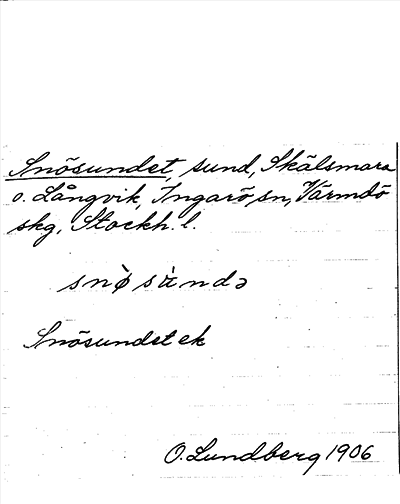 Snösundet, sund, Skälsmara
o. Långvik, Ingarö, sn, Värmdö
skg, Stockh. l.
snø̀sùndə
Snösundet ek
O. Lundberg 1906